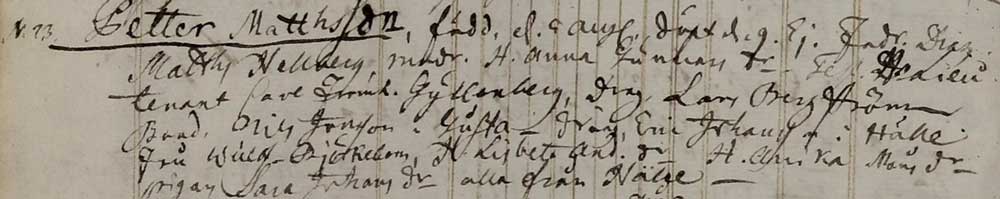 N. 23. Petter Matthsson, född d. 5 aug. döpt d. 9. Ej. Fadr. Drag.
Matths Hellberg, modr. H. Anna Gunnars dr Test. Lieu
tenant Carl Fredrik. Gyllenberg, Drag. Lars Bergström
Bond. Nils Jonson i Gusta Drag. Eric Johans i Hälle
Fru Björkebom, H. Lisbeta And. dr H. Anika Mons dr
pigan Sara Johans dr alla från Hälge